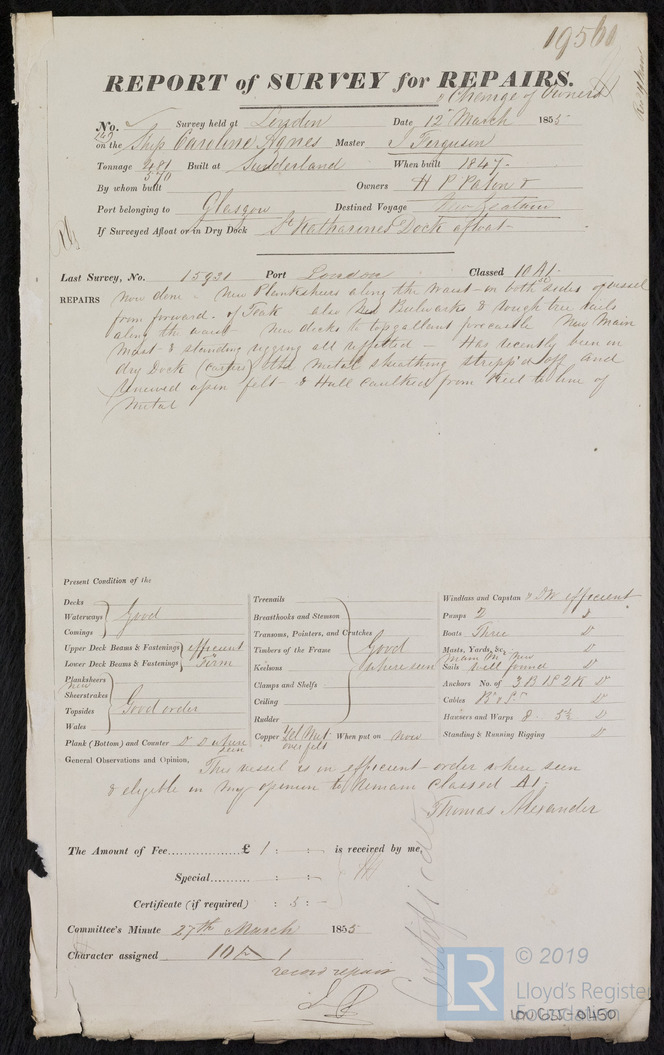 19560
REPORT of SURVEY for REPAIRS.
& Change of Owners
No. Survey held at London Date 12 March 1855
on the Ship Caroline Agnes Master J Ferguson
Tonnage 481 Built at Sunderland When built 1847.
570
By whom built Owners H P Paton &
Port belonging to Glasgow Destined Voyage New Zealand
If Surveyed Afloat or in Dry Dock St Katharines Dock afloat
Last Survey, No. 15931 Port London Classed 10 A1.
REPAIRS now done. New Plansheers along the Waist on both sides of vessel
from forward. of Teak also Bulwarks & rough tree rails
along the waist new decks to topgallant forecastle New Main
Mast & standing rigging all refitted — Has recently been in
dry Dock the metal sheathing stripp'd off and
renewed upon felt & Hull caulked from Keel to line of
Metal
Present Condition of the
Decks
Waterways Good
Comings
Upper Deck Beams & Fastenings efficient
Lower Deck Beams & Fastenings Firm
Planksheers new
Sheerstrakes
Topsides Good order
Wales
Plank (Bottom) and Counter Do Do where seen
Treenails
Breasthooks and Stemson
Transoms, Pointers, and Crutches
Timbers of the Frame Good
Keelsons where seen
Clamps and Shelfs
Ceiling
Rudder
Copper Yel Met. over felt When put on now
Windlass and Capstan efficient
Pumps 2 Do
Boats Three Do
Masts, Yards, &c. Main Mt new Do
Sails well found Do
Anchors No. of 3 B 1 S 2 K Do
Cables Do
Hawsers and Warps 8 5½ Do
Standing & Running Rigging Do
General Observations and Opinion, This vessel is in efficient order where seen
& eligible in my opinion to remain classed A1.
Thomas Alexander
The Amount of Fee.................£ 1 : - : - is received by me,
Special.......... : - : -
Certificate (if required) : 5 : -
Certificate
Committee's Minute 27th March 1855
Character assigned 10 A 1
record repair
LR
© 2019
Lloyd's Register
Foundation
LON 655-0450